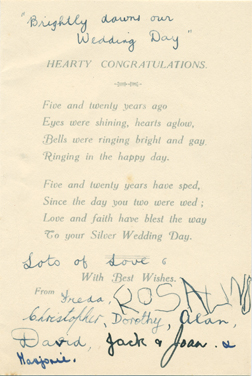 "Brightly dawns our
Wedding Day"
HEARTY CONGRATULATIONS.
Five and twenty years ago
Eyes were shining, hearts aglow,
Bells were ringing bright and gay,
Ringing in the happy day.
Five and twenty years have sped,
Since the day you two were wed;
Love and faith have blest the way
To your Silver Wedding Day.
Lots of Love &
With Best Wishes.
From Freda, ROSALIND
Christopher, Dorothy, Alan,
David, Jack & Joan. &
Marjorie.